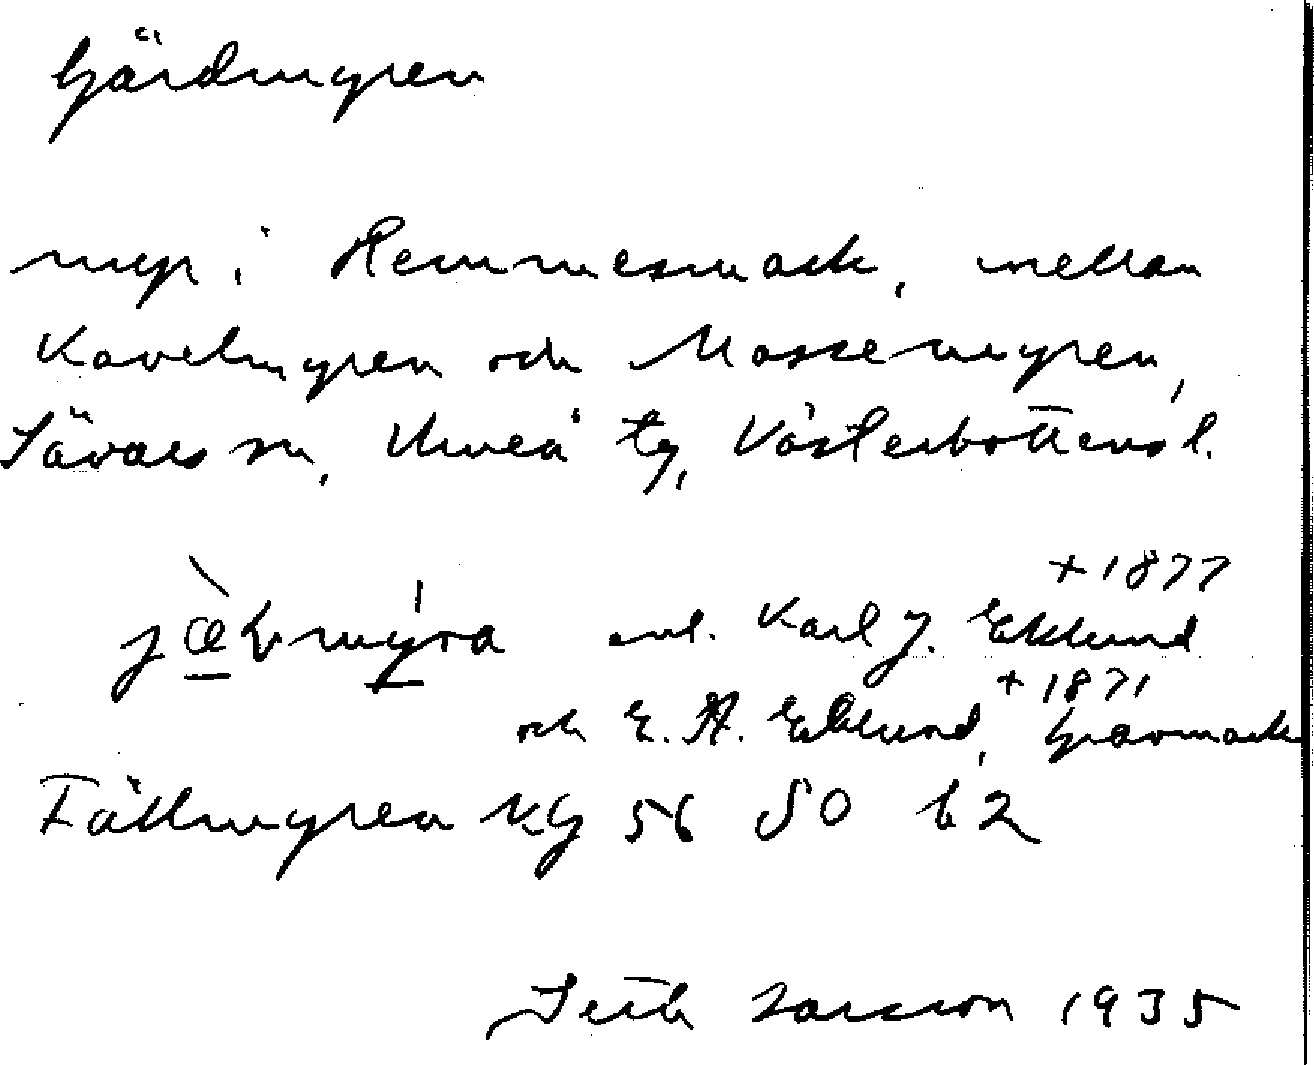 Gärdmyren
myr i Hemmesmark, mellan
Kavelmyren och Mossemyren,
Sävars sn, Umeå tg, Västerbottens l.
+ 1877
enl. Karl J. Eklund
+ 1871
och E. A. Eklund, Gravmark
Fällmyren KG 56 SO b2
Seth Larsson 1935